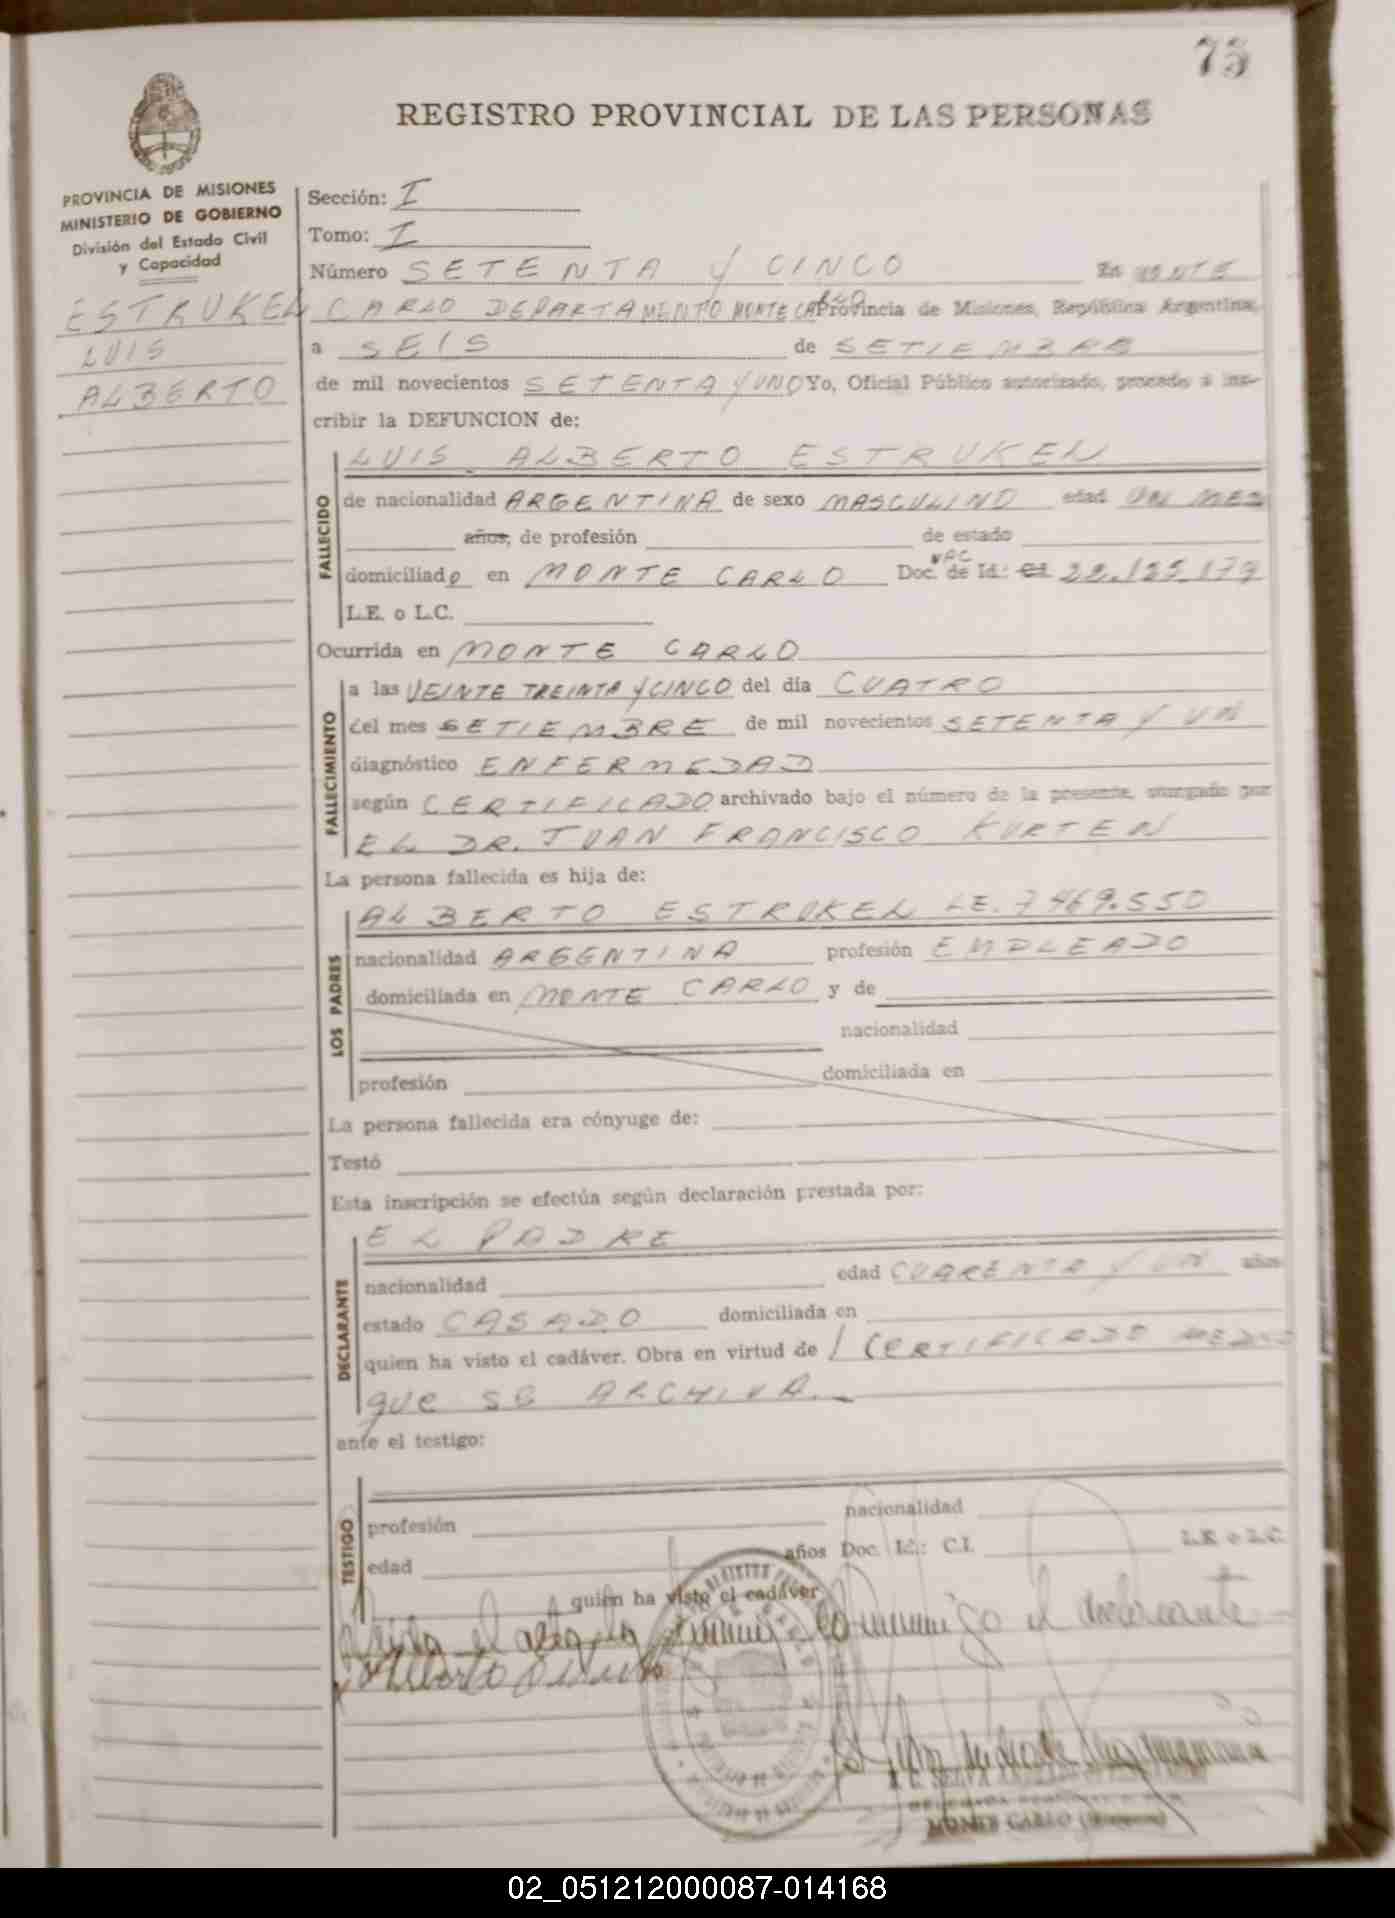 75
REGISTRO PROVINCIAL DE LAS PERSONAS
PROVINCIA DE MISIONES
MINISTERIO DE GOBIERNO
División del Estado Civil
y Capacidad
ESTRUKEN
LUIS
ALBERTO
Sección: I
Tomo: I
Número SETENTA Y CINCO En MONTE
CARLO DEPARTAMENTO MONTE CARLO Provincia de Misiones, República Argentina,
a SEIS de SETIEMBRE
de mil novecientos SETENTA Y UNO Yo, Oficial Público autorizado, procedo a ins-
cribir la DEFUNCION de:
LUIS ALBERTO ESTRUKEN
FALLECIDO
de nacionalidad ARGENTINA de sexo MASCULINO edad UN MES
años, de profesión de estado
domiciliado en MONTE CARLO Doc. NAC de Id.: CI 22.125.179
L.E. o L.C.
Ocurrida en MONTE CARLO
FALLECIMIENTO
a las VEINTE TREINTA Y CINCO del día CUATRO
del mes SETIEMBRE de mil novecientos SETENTA Y UN
diagnóstico ENFERMEDAD
según CERTIFICADO archivado bajo el número de la presente, otorgado por
EL DR. JUAN FRANCISCO KURTEN
La persona fallecida es hija de:
LOS PADRES
ALBERTO ESTRUKEN LE. 7469.550
nacionalidad ARGENTINA profesión EMPLEADO
domiciliada en MONTE CARLO y de
nacionalidad
profesión domiciliada en
La persona fallecida era cónyuge de:
Testó
Esta inscripción se efectúa según declaración prestada por:
EL PADRE
DECLARANTE
nacionalidad edad CUARENTA Y UN años
estado CASADO domiciliada en
quien ha visto el cadáver. Obra en virtud de 1 CERTIFICADO MEDICO
que SE ARCHIVA.-
ante el testigo:
TESTIGO
nacionalidad
profesión
edad años Doc. Id.: C.I. L.E. o L.C.
quién ha visto el cadáver
Leida el acta la firma conmigo el declarante
Alberto
MONTE CARLO (Misiones)
02_051212000087-014168